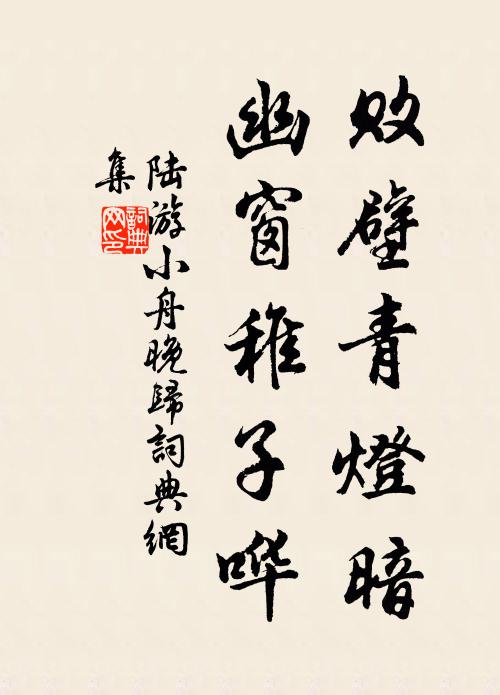 败壁青燈暗
幽窗稚子哗
陆游小舟晚歸詞典網
集
詞典网印